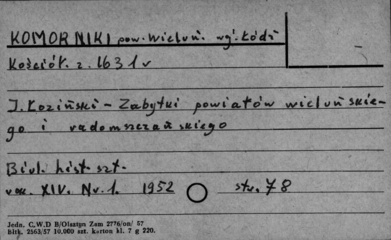 KOMORNIKI pow. Wieluń. wg. Łódź
Kościół. z. 1631 r
J. Łoziński – Zabytki powiatów wieluńskie-
go i radomszczańskiego
Biul. hist. szt.
rok. XIV. Nr. 1. 1952 str. 78
Jedn. C.W.D B/Olsztyn Zam 2776/on/ 57
Blrk. 2563/57 10.000 szt. karton kl. 7 g 220.